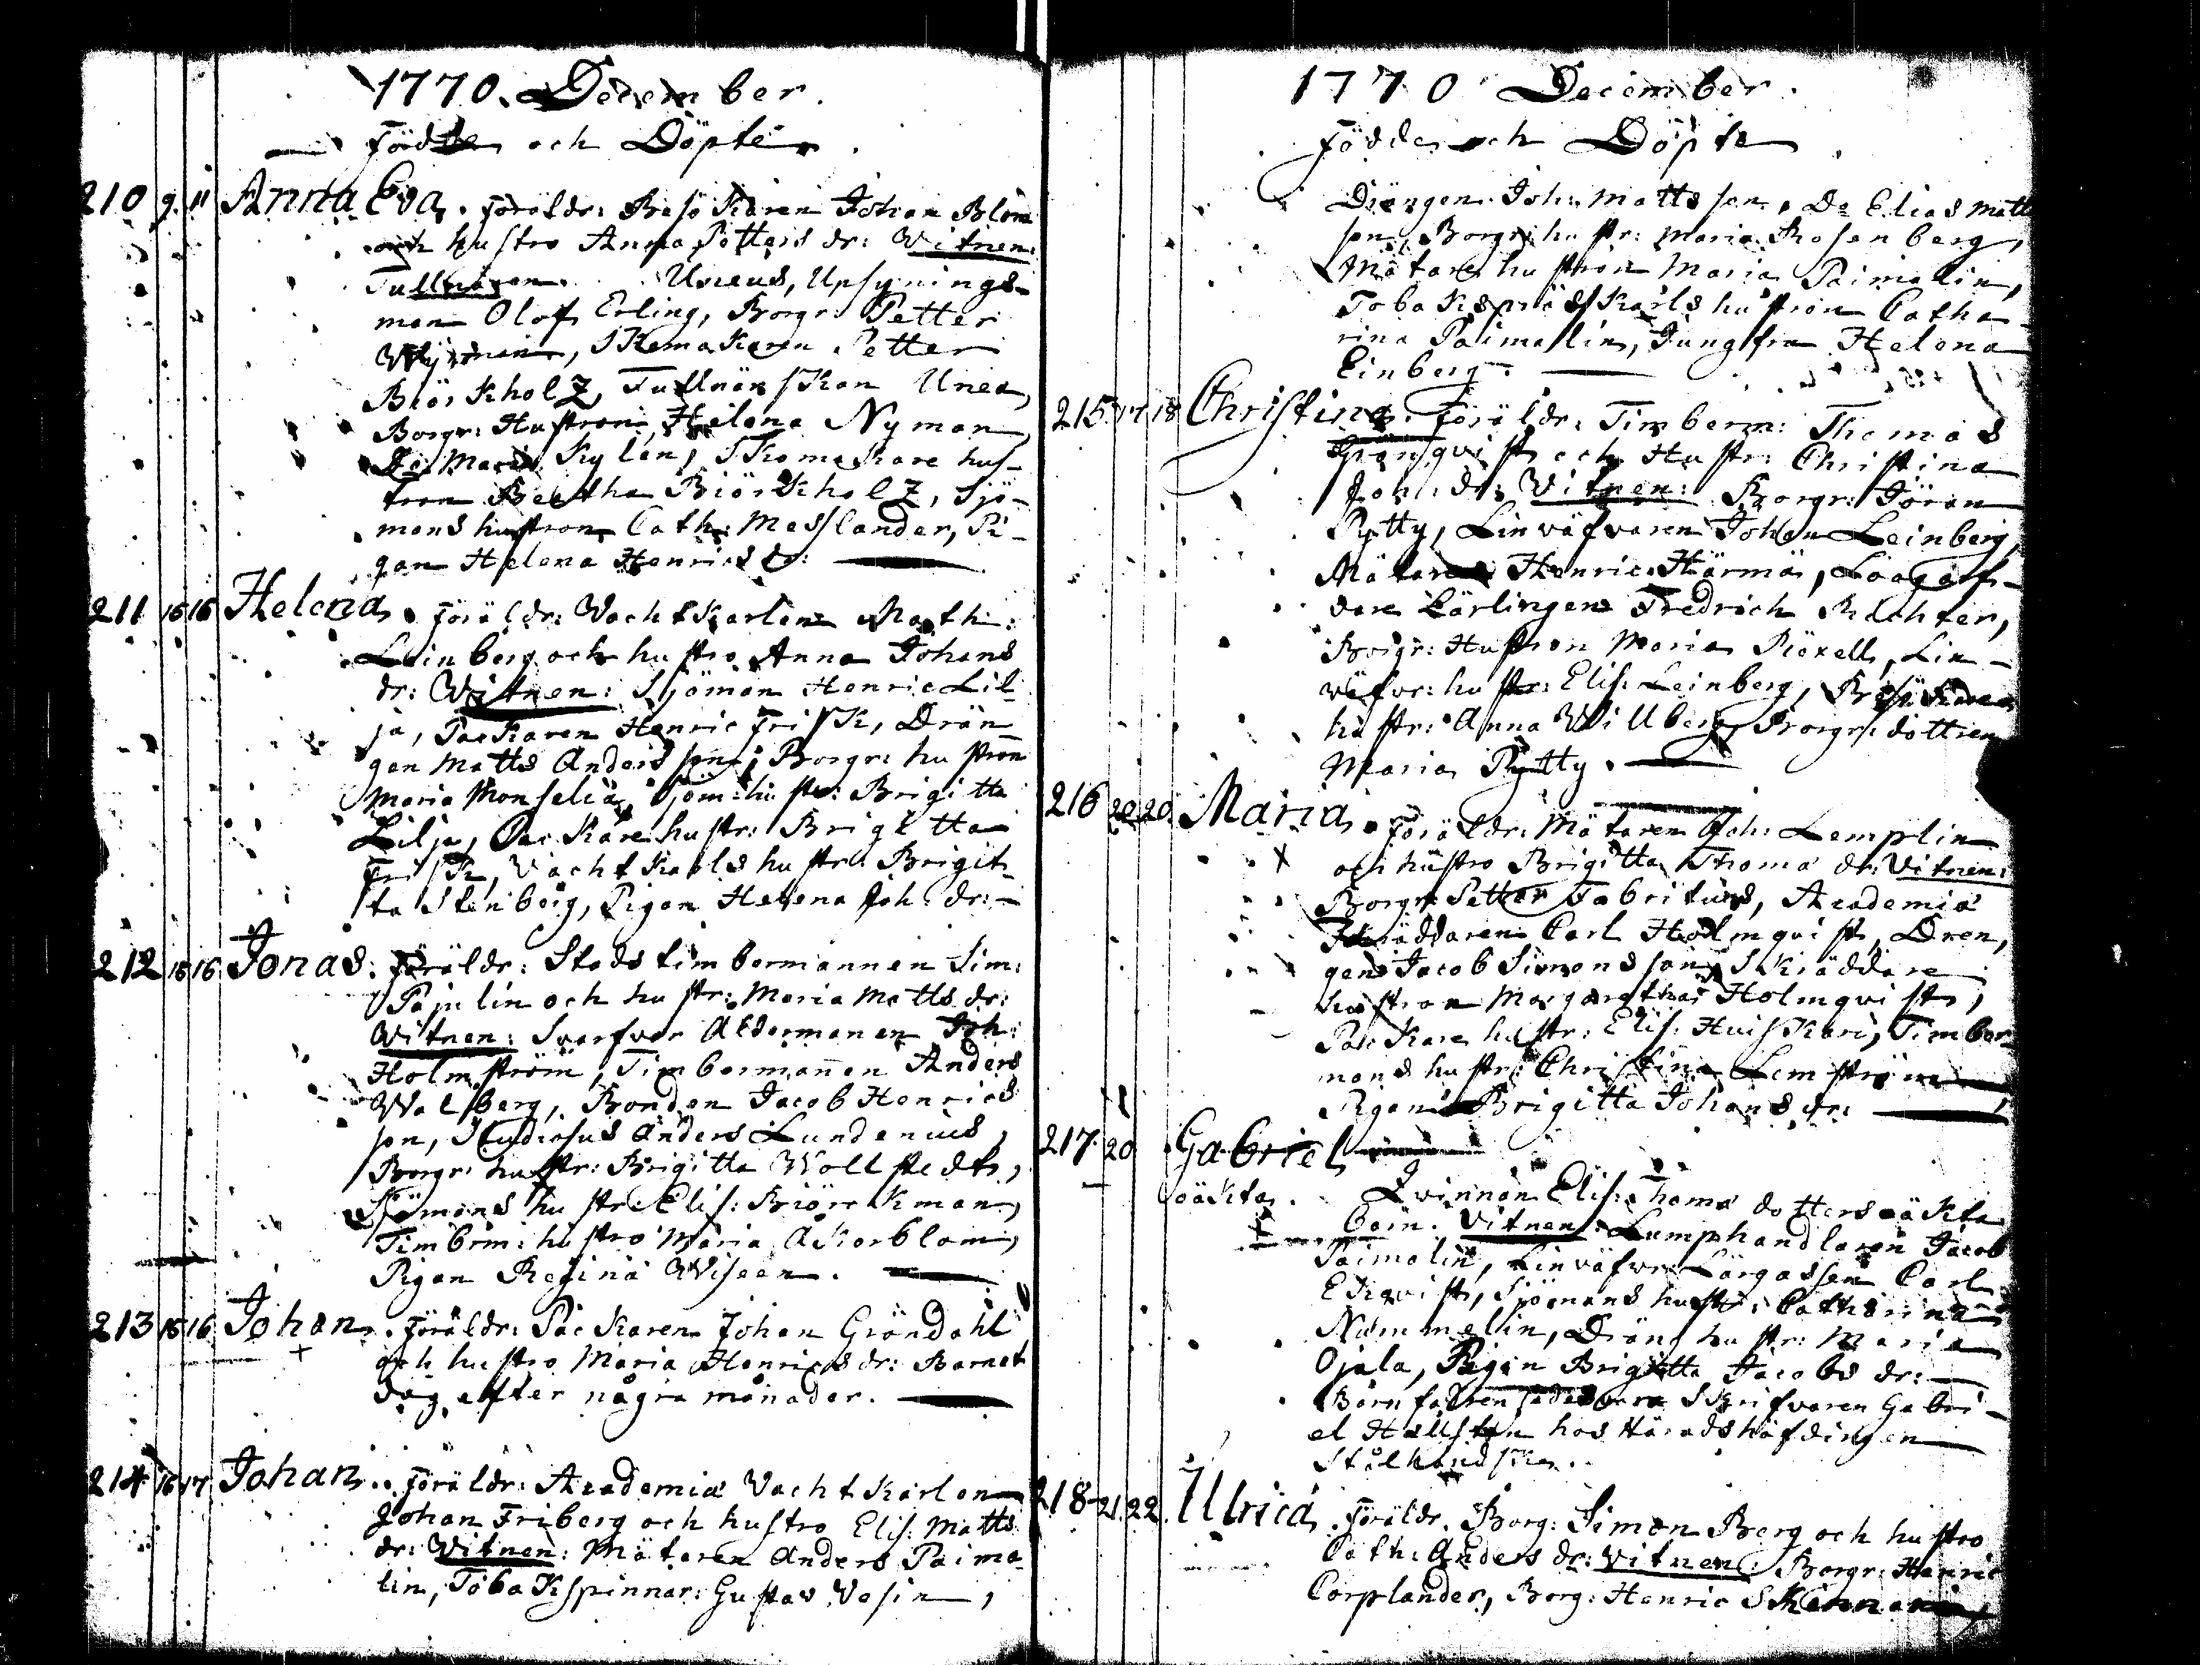 1770. December.
Födde och Döpte
210 9. 11 Anna Eva. Föräldr: Besökaren Johan Blom
och hustro Anna Petters dr: Witnen:
Tullnären Uneus, Upsynings-
man Olof Erling, Borgr: Petter
Wijnman, Skomakaren Petter
Biörkholz, Tullnärskan Unea,
Borgr: Hustron Helena Nyman,
Do Maria Kylen, Skomakare hus-
tron Beatha Biörkholz, Sjö-
mans hustron Cath: Messlander, Pi-
gan Helena Henrics dr:
211 15 16 Helena. Föräldr: Vachtkarlen Math:
Leinberg och hustro Anna Johans
dr: Witnen: Sjöman Henric Lil-
ja, Packaren Henric Frisk, Drän-
gen Matts Anders son, Borgr: hustron
Maria Monselia, Sjöm: hustr: Brigitta
Lilja, Packare hustr: Brigitta
Frisk, Vachtkarls hustr: Brigit-
ta Stenberg, Pigan Helena Joh: dr:
212 15 16 Jonas. Föräldr: Stads timbermannen Sim:
Pajulin och hustr: Maria Matts dr:
Witnen: Svarfvar Åldermanen Joh:
Holmström, Timbermannen Anders
Walberg, Bonden Jacob Henrics
son, Studiosus Anders Lundenius,
Borgr: hustr: Brigitta Wollstedt,
Sjömans hustr: Elis: Biörckman,
Timberm: hustro Maria Åkerblom,
Pigan Regina Wiseen.
213 15 16 Johan. Föräldr: Packaren Johan Gröndahl
och hustro Maria Henrics dr: Barnet
dog efter några månader.
214 16 17 Johan. Föräldr: Academiæ Vachtkarlen
Johan Friberg och hustro Elis: Matts
dr: Witnen: Mätaren Anders Paima-
lin, Tobakspinnar: Gustav Vasin,
1770 December.
Födde och Döpte
Drängen Joh: Matts son, Do Elias Matts
son, Borgr: hustr: Maria Rosenberg,
Mätare hustron Maria Paimalin,
Tobaks hustron Catha-
rina Paimalin, Jungfru Helena
Einberg.
215 17 18 Christina. Föräldr: Timberm: Thomas
Grönqvist och Hustr: Christina
Joh: dr: Witnen: Borgr: Jöran
Pytty, Linväfvaren Johan Leinberg,
Mätaren Henric Härmä,
Lärlingen Fredrich Richter,
Borgr: Hustron Maria Röxell, Lin-
väfvr: hustr: Elis: Leinberg, Besökare
hustr: Anna Willberg, Borgr: dottren
Maria Pytty.
216 20 20 Maria. Föräldr: Mätaren Joh: Lemplin
och hustro Brigitta Thomæ dr: Vitnen:
Borgr: Petter Fabritius, Academiæ
Skräddaren Carl Holmqvist, Dren,
gen Jacob Simons son, Skräddare
hustron Margaretha Holmqvist,
Packare hustr: Elis: Huiskari, Timber
mans hustr: Christina Lemström
Pigan Brigitta Johans dr:
217. 20 Gabriel
oäkta. Qvinnan Elis: Thomæ dotters oäkta
barn. Vitnen: Lumphandlaren Jacob
Paimalin, Linväfvr: Lärgossen Carl
Ekqvist, Sjömans hustr: Catharina
Nummelin, Dräng hustr: Maria
Ojala, Pigan Brigitta Jacobs dr:
Barnfadren sades vara Skrifvaren Gabri-
el Hallsten hos Häradshöfdingen
Stålhandske.
218 21. 22. Ulrica. Föräldr. Borg: Simon Berg och hustro
Cath: Anders dr: Vitnen: Borgr: Henric
Corplander, Borg: Henric